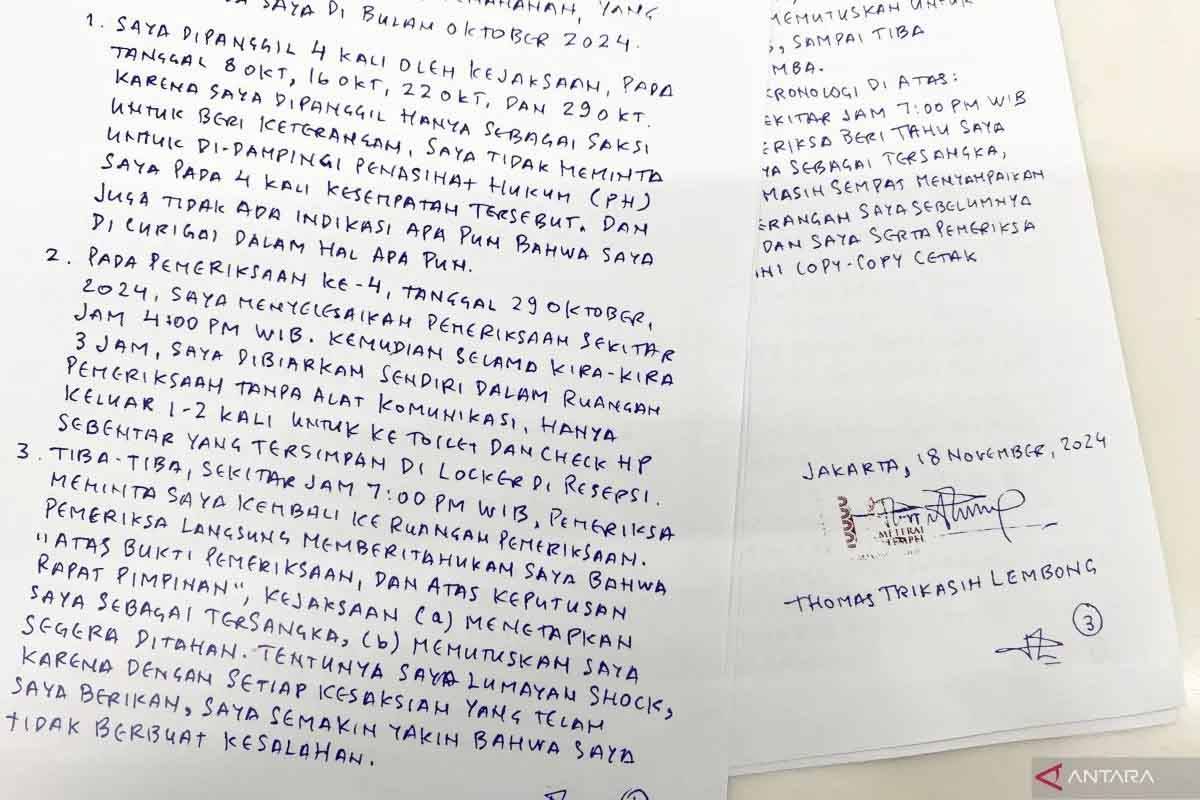 SAYA DI BULAN OKTOBER 2024.
1. SAYA DIPANGGIL 4 KALI OLEH KEJAKSAAN, PADA
TANGGAL 8 OKT, 16 OKT, 22 OKT, DAN 29 OKT.
KARENA SAYA DIPANGGIL HANYA SEBAGAI SAKSI
UNTUK BERI KETERANGAN, SAYA TIDAK MEMINTA
UNTUK DI-DAMPINGI PENASIHAT HUKUM (PH)
SAYA PADA 4 KALI KESEMPATAN TERSEBUT. DAN
JUGA TIDAK ADA INDIKASI APA PUN BAHWA SAYA
DI CURIGAI DALAM HAL APA PUN.
2. PADA PEMERIKSAAN KE-4, TANGGAL 29 OKTOBER,
2024, SAYA MENYELESAIKAN PEMERIKSAAN SEKITAR
JAM 4:00 PM WIB. KEMUDIAN SELAMA KIRA-KIRA
3 JAM, SAYA DIBIARKAN SENDIRI DALAM RUANGAN
PEMERIKSAAN TANPA ALAT KOMUNIKASI, HANYA
KELUAR 1-2 KALI UNTUK KE TOILET DAN CHECK HP
SEBENTAR YANG TERSIMPAN DI LOCKER DI RESEPSI.
3. TIBA-TIBA, SEKITAR JAM 7:00 PM WIB, PEMERIKSA
MEMINTA SAYA KEMBALI KE RUANGAN PEMERIKSAAN.
PEMERIKSA LANGSUNG MEMBERITAHUKAN SAYA BAHWA
"ATAS BUKTI PEMERIKSAAN, DAN ATAS KEPUTUSAN
RAPAT PIMPINAN", KEJAKSAAN (a) MENETAPKAN
SAYA SEBAGAI TERSANGKA, (b) MEMUTUSKAN SAYA
SEGERA DITAHAN. TENTUNYA SAYA LUMAYAN SHOCK,
KARENA DENGAN SETIAP KESAKSIAN YANG TELAH
SAYA BERIKAN, SAYA SEMAKIN YAKIN BAHWA SAYA
TIDAK BERBUAT KESALAHAN.
MEMUTUSKAN UNTUK
, SAMPAI TIBA
MBA.
KRONOLOGI DI ATAS:
EKITAR JAM 7:00 PM WIB
ERIKSA BERI TAHU SAYA
YA SEBAGAI TERSANGKA,
MASIH SEMPAT MENYAMPAIKAN
ERANGAN SAYA SEBELUMNYA
DAN SAYA SERTA PEMERIKSA
NI COPY-COPY CETAK
JAKARTA, 18 NOVEMBER, 2024
METERAI
TEMPEL
THOMAS TRIKASIH LEMBONG
3
ANTARA